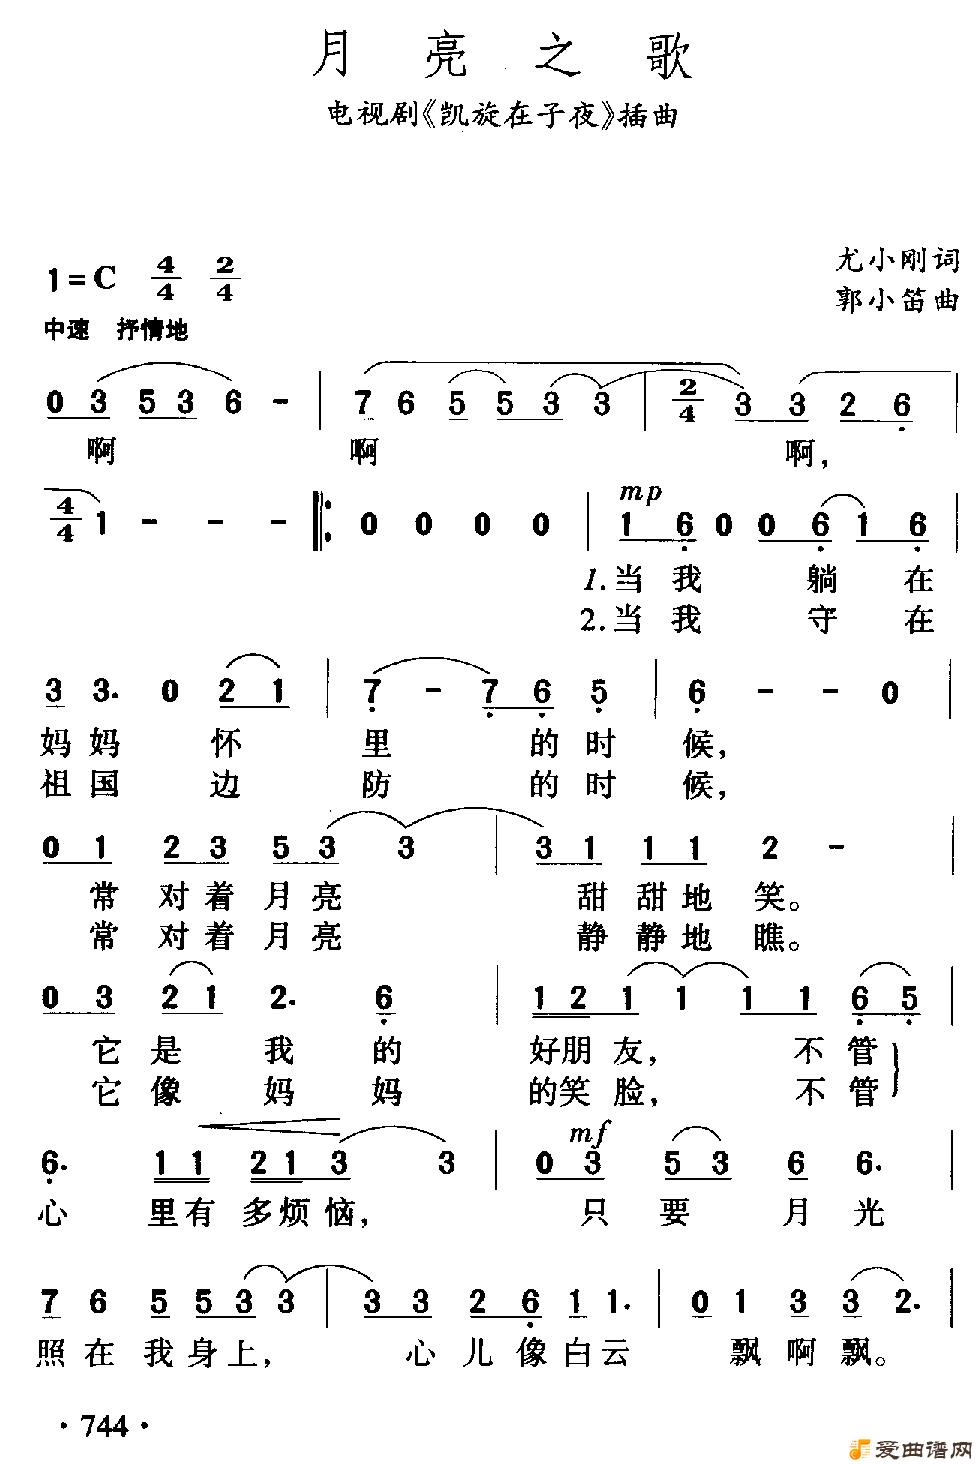 月亮之歌
电视剧《凯旋在子夜》插曲
尤小刚词
1=C 4/4 2/4
郭小笛曲
中速 抒情地
0 3 5 3 6 - | 7 6 5 5 3 3 | 2/4 3 3 2 6 |
啊 啊 啊,
4/4 1 - - - |: 0 0 0 0 | 1 6 0 0 6 1 6 |
mp
1.当我 躺在
2.当我 守在
3 3. 0 2 1 | 7 - 7 6 5 | 6 - - 0 |
妈妈 怀 里 的时 候,
祖国 边 防 的时 候,
0 1 2 3 5 3 3 | 3 1 1 1 2 - |
常 对着月亮 甜 甜地 笑。
常 对着月亮 静 静地 瞧。
0 3 2 1 2. 6 | 1 2 1 1 1 1 6 5 |
它 是 我 的 好朋友, 不管
它 像 妈 妈 的笑脸, 不管
mf
6. 1 1 2 1 3 3 | 0 3 5 3 6 6. |
心 里有多烦恼, 只 要 月 光
7 6 5 5 3 3 | 3 3 2 6 1 1. | 0 1 3 3 2. |
照在我身上, 心儿像白云 飘啊飘。
·744·
爱曲谱网